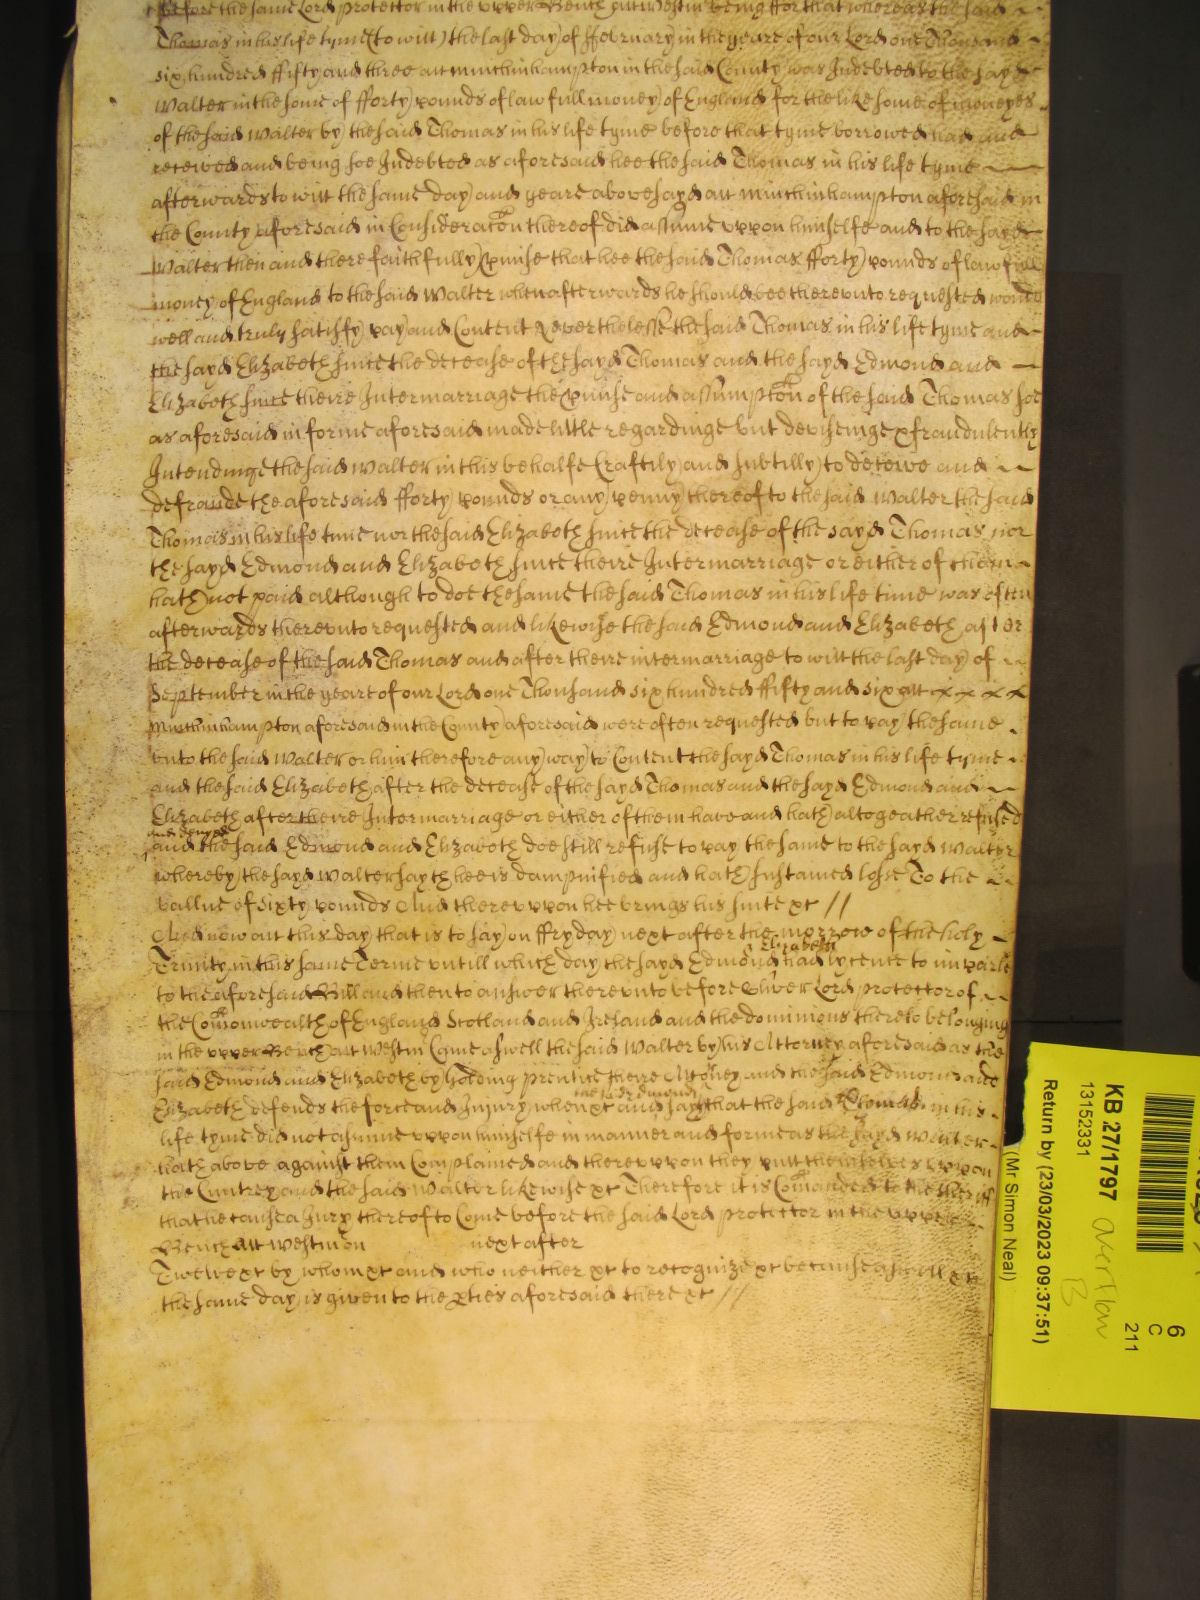 before the same Lord Protector in the upper Bench att Westm being ffor that whereas the said
Thomas in his life tyme (to witt) the last day of ffebruary in the yeare of our Lord one Thousand
six hundred ffifty and three att minchinhampton in the said County was Indebted to the sayd
Walter in the some of fforty pounds of lawfull money of England for the like some of moneyes
of the said Walter by the said Thomas in his life tyme before that tyme borrowed had and
received and being soe Indebted as aforesaid hee the said Thomas in his life tyme
afterwards to witt the same day and yeare abovesayd att minchinhampton aforesaid in
the County aforesaid in Consideracon thereof did assume uppon himselfe and to the sayd
Walter then and there faithfully pmise that hee the said Thomas fforty pounds of lawfull
money of England to the said Walter when afterwards he should bee thereunto requested would
well and truly satisfy pay and Content Neverthelesse the said Thomas in his life tyme and
the sayd Elizabeth since the decease of the sayd Thomas and the sayd Edmond and
Elizabeth since theire Intermarriage the pmise and assumpcon of the said Thomas soe
as aforesaid in forme aforesaid made little regardinge but deviseinge & fraudulently
Intendinge the said Walter in this behalfe Craftily and subtilly to deceive and
defraude the aforesaid fforty pounds or any penny thereof to the said Walter the said
Thomas in his life time nor the said Elizabeth since the decease of the sayd Thomas nor
the sayd Edmond and Elizabeth since theire Intermarriage or either of them
hath not paid although to doe the same the said Thomas in his life time was often
afterwards thereunto requested and likewise the said Edmond and Elizabeth after
the decease of the said Thomas and after theire intermarriage to witt the last day of
September in the yeare of our Lord one Thousand six hundred ffifty and six att
minchinhampton aforesaid in the County aforesaid were often requested but to pay the same
unto the said Walter or him therefore any way to Content the sayd Thomas in his life tyme
and the said Elizabeth after the decease of the sayd Thomas and the sayd Edmond and
Elizabeth after theire Intermarriage or either of them have and hath altogeather refused
and denyed
and the said Edmond and Elizabeth doe still refuse to pay the same to the sayd Walter
whereby the sayd Walter sayth hee is dampnified and hath sustained losse To the
vallue of sixty pounds And thereuppon hee brings his suite &c //
And now att this day that is to say on ffryday next after the morrow of the holy
Trinity in this same Terme untill which day the sayd Edmond Elizabeth had lycence to imparle
to the aforesaid Bill and then to answer thereunto before Oliver Lord Protector of
the Comonwealth of England Scotland and Ireland and the dominions thereto belonging
in the upper Bench att Westm Came aswell the said Walter by his Attorney aforesaid as the
said Edmond and Elizabeth by Holding Prentice theire Attorney and the said Edmond and
Elizabeth defends the force and Injury when &c and say that the said Thomas in his
life tyme did not assume uppon himselfe in manner and forme as the sayd Walter
hath above against them Complained and thereuppon they putt themselves uppon
the Cuntrey and the said Walter likewise &c Therefore it is Comanded to the Sheriff
that he cause a Jury thereof to Come before the said Lord Protector in the upper
Bench att Westm on next after
Twelve &c by whom &c and who neither &c to recognize &c because aswell &c
the same day is given to the pties aforesaid there &c //
KB 27/1797
13152331
Return by (23/03/2023 09:37:51)
(Mr Simon Neal)
overflow
6
C
211